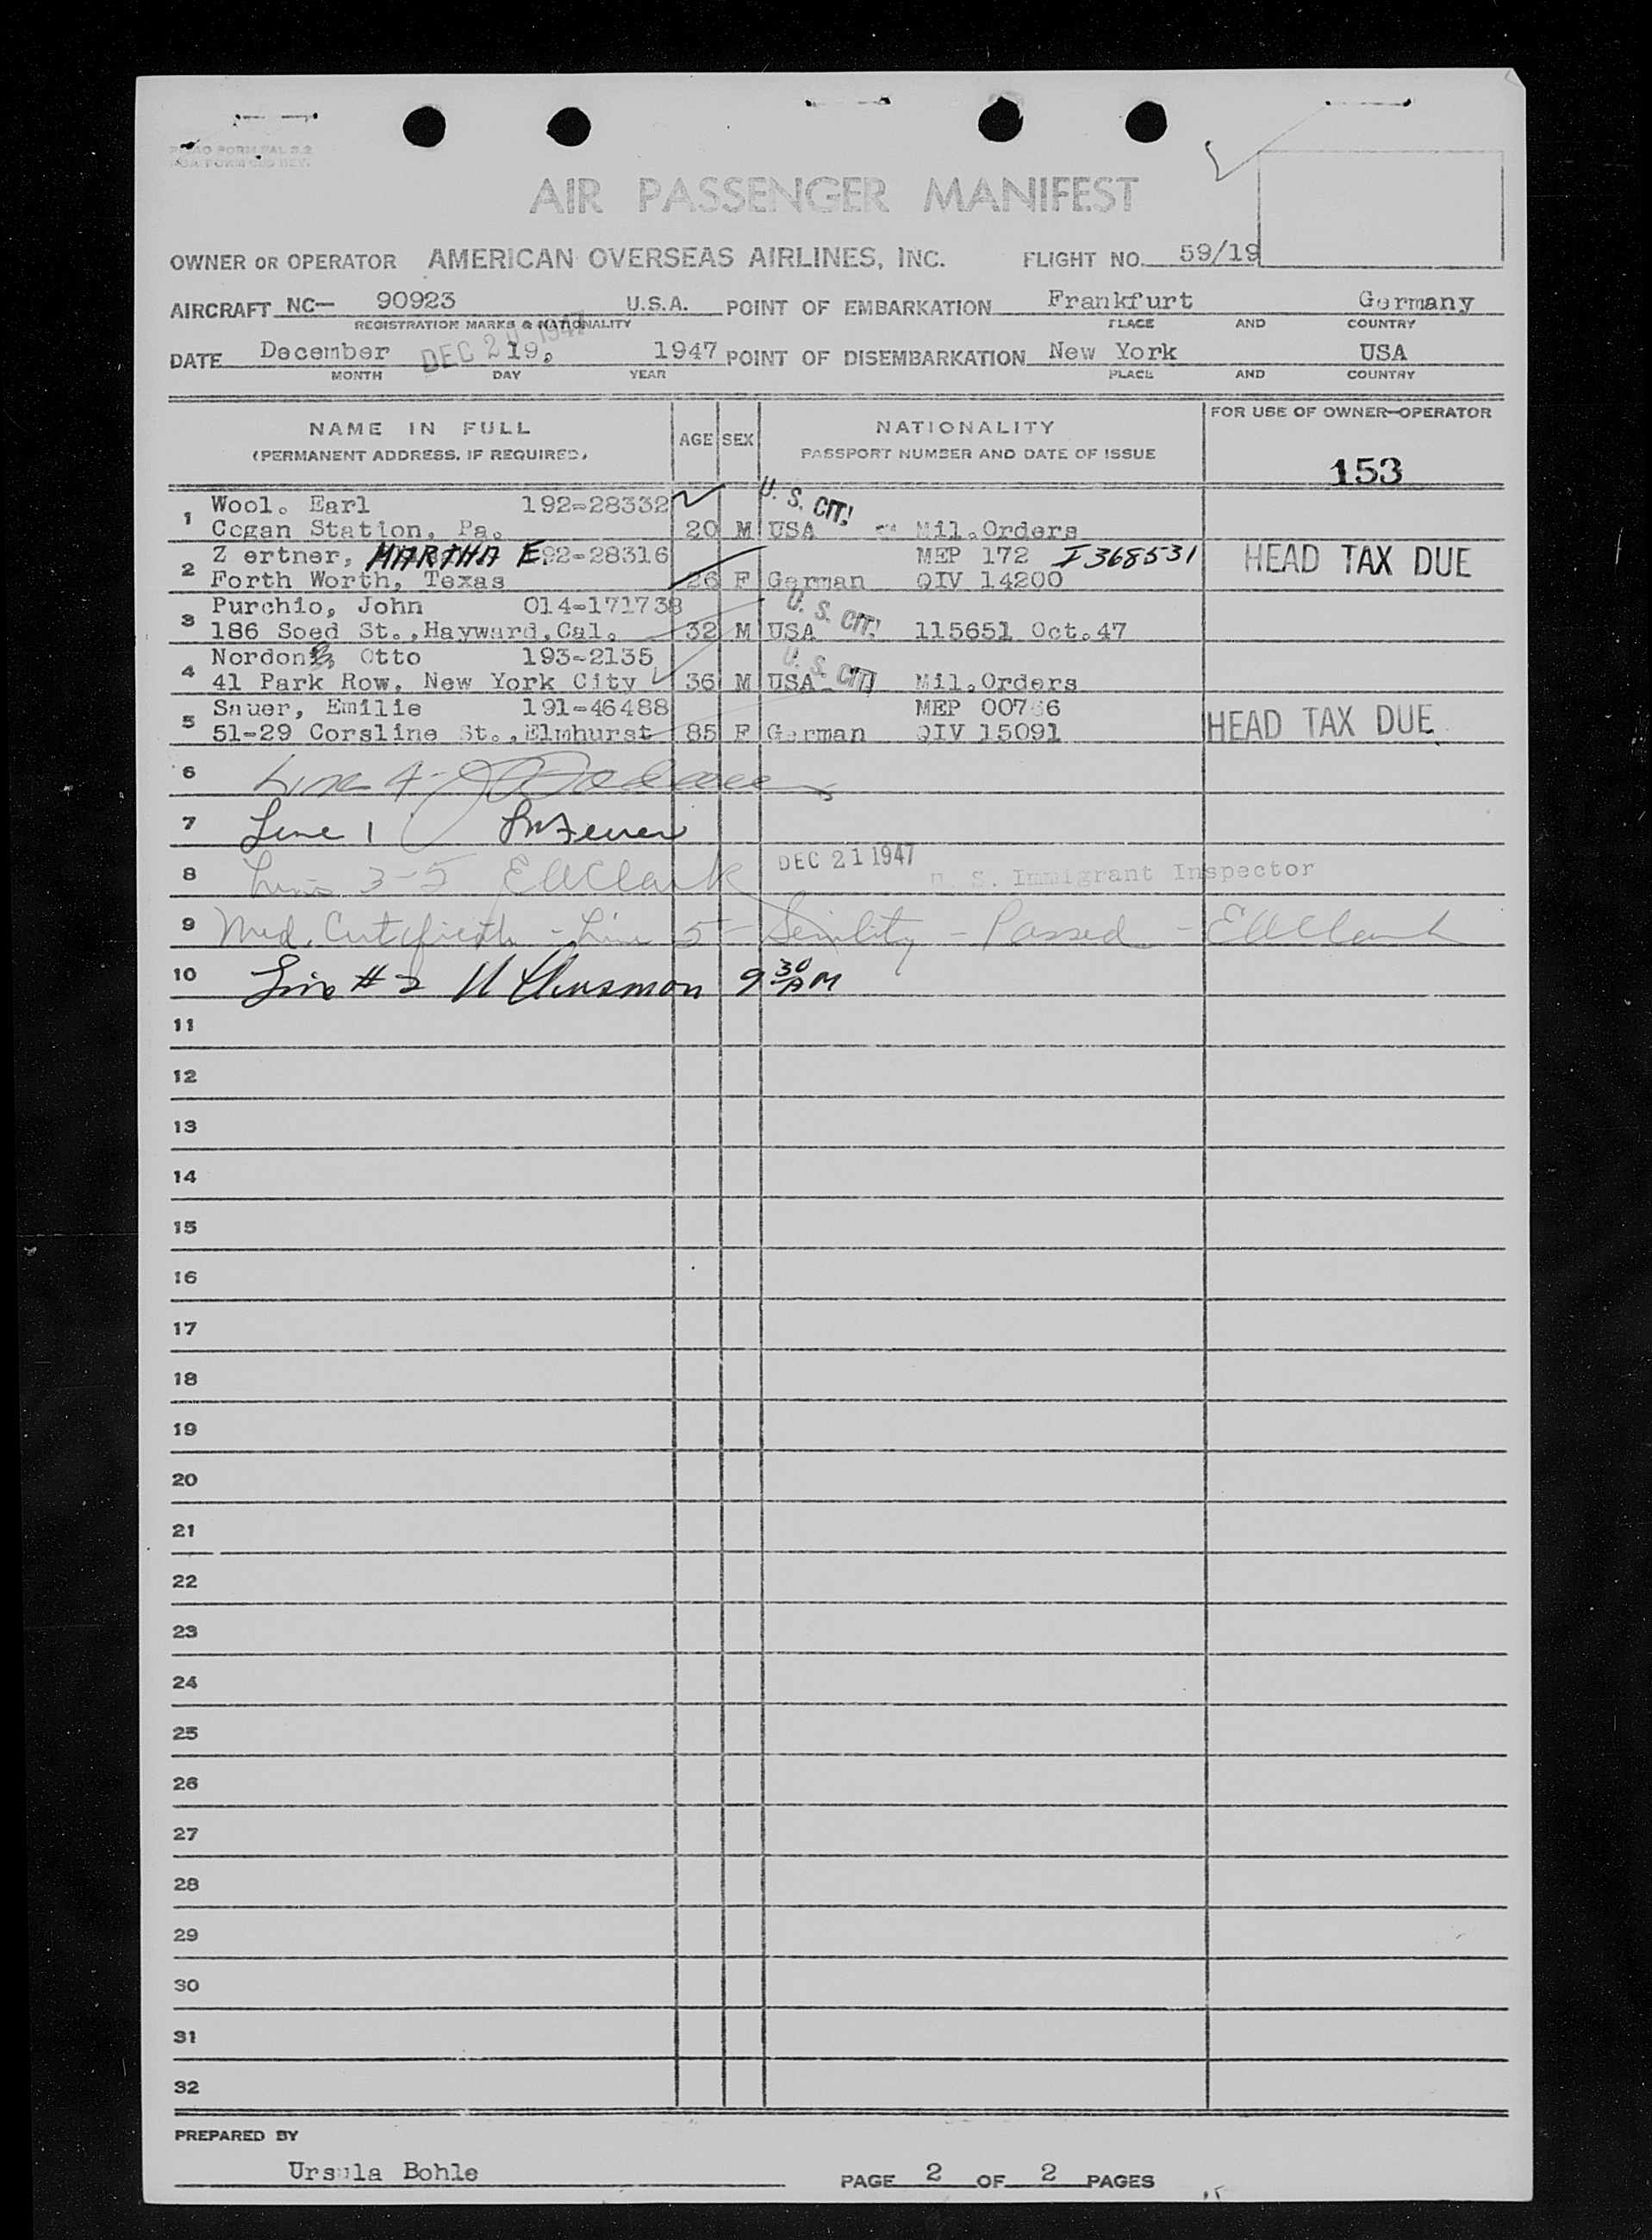 AIR PASSENGER MANIFEST
OWNER OR OPERATOR AMERICAN OVERSEAS AIRLINES, INC. FLIGHT NO. 59/19
AIRCRAFT NC— 90923 U.S.A. POINT OF EMBARKATION Frankfurt Germany
REGISTRATION MARKS & NATIONALITY PLACE AND COUNTRY
DEC 20 1947
DATE December 19, 1947 POINT OF DISEMBARKATION New York USA
MONTH DAY YEAR PLACE AND COUNTRY
NAME IN FULL
(PERMANENT ADDRESS, IF REQUIRED)
AGE SEX
NATIONALITY
PASSPORT NUMBER AND DATE OF ISSUE
FOR USE OF OWNER—OPERATOR
153
1 Wool. Earl 192-28332 U. S. CIT!
Cogan Station, Pa. 20 M USA - Mil.Orders
2 Z ertner, MARTHA E. 92-28316 MEP 172 I 368531 HEAD TAX DUE
Forth Worth, Texas 26 F German QIV 14200
3 Purchio, John 014-171738 U. S. CIT!
186 Soed St.,Hayward,Cal. 32 M USA 115651 Oct.47
4 Nordon, Otto 193-2135 U. S. CIT!
41 Park Row, New York City 36 M USA Mil.Orders
5 Sauer, Emilie 191-46488 MEP 00766 HEAD TAX DUE
51-29 Corsline St.,Elmhurst 85 F German QIV 15091
6 Line 4-
7 Line 1
8 Lines 3-5 EWClark DEC 21 1947 U. S. Immigrant Inspector
9 Med. Certificate - Line 5 - Senility - Passed - EWClark
10 Line #2 9 30 AM
11
12
13
14
15
16
17
18
19
20
21
22
23
24
25
26
27
28
29
30
31
32
PREPARED BY
Ursula Bohle
PAGE 2 OF 2 PAGES